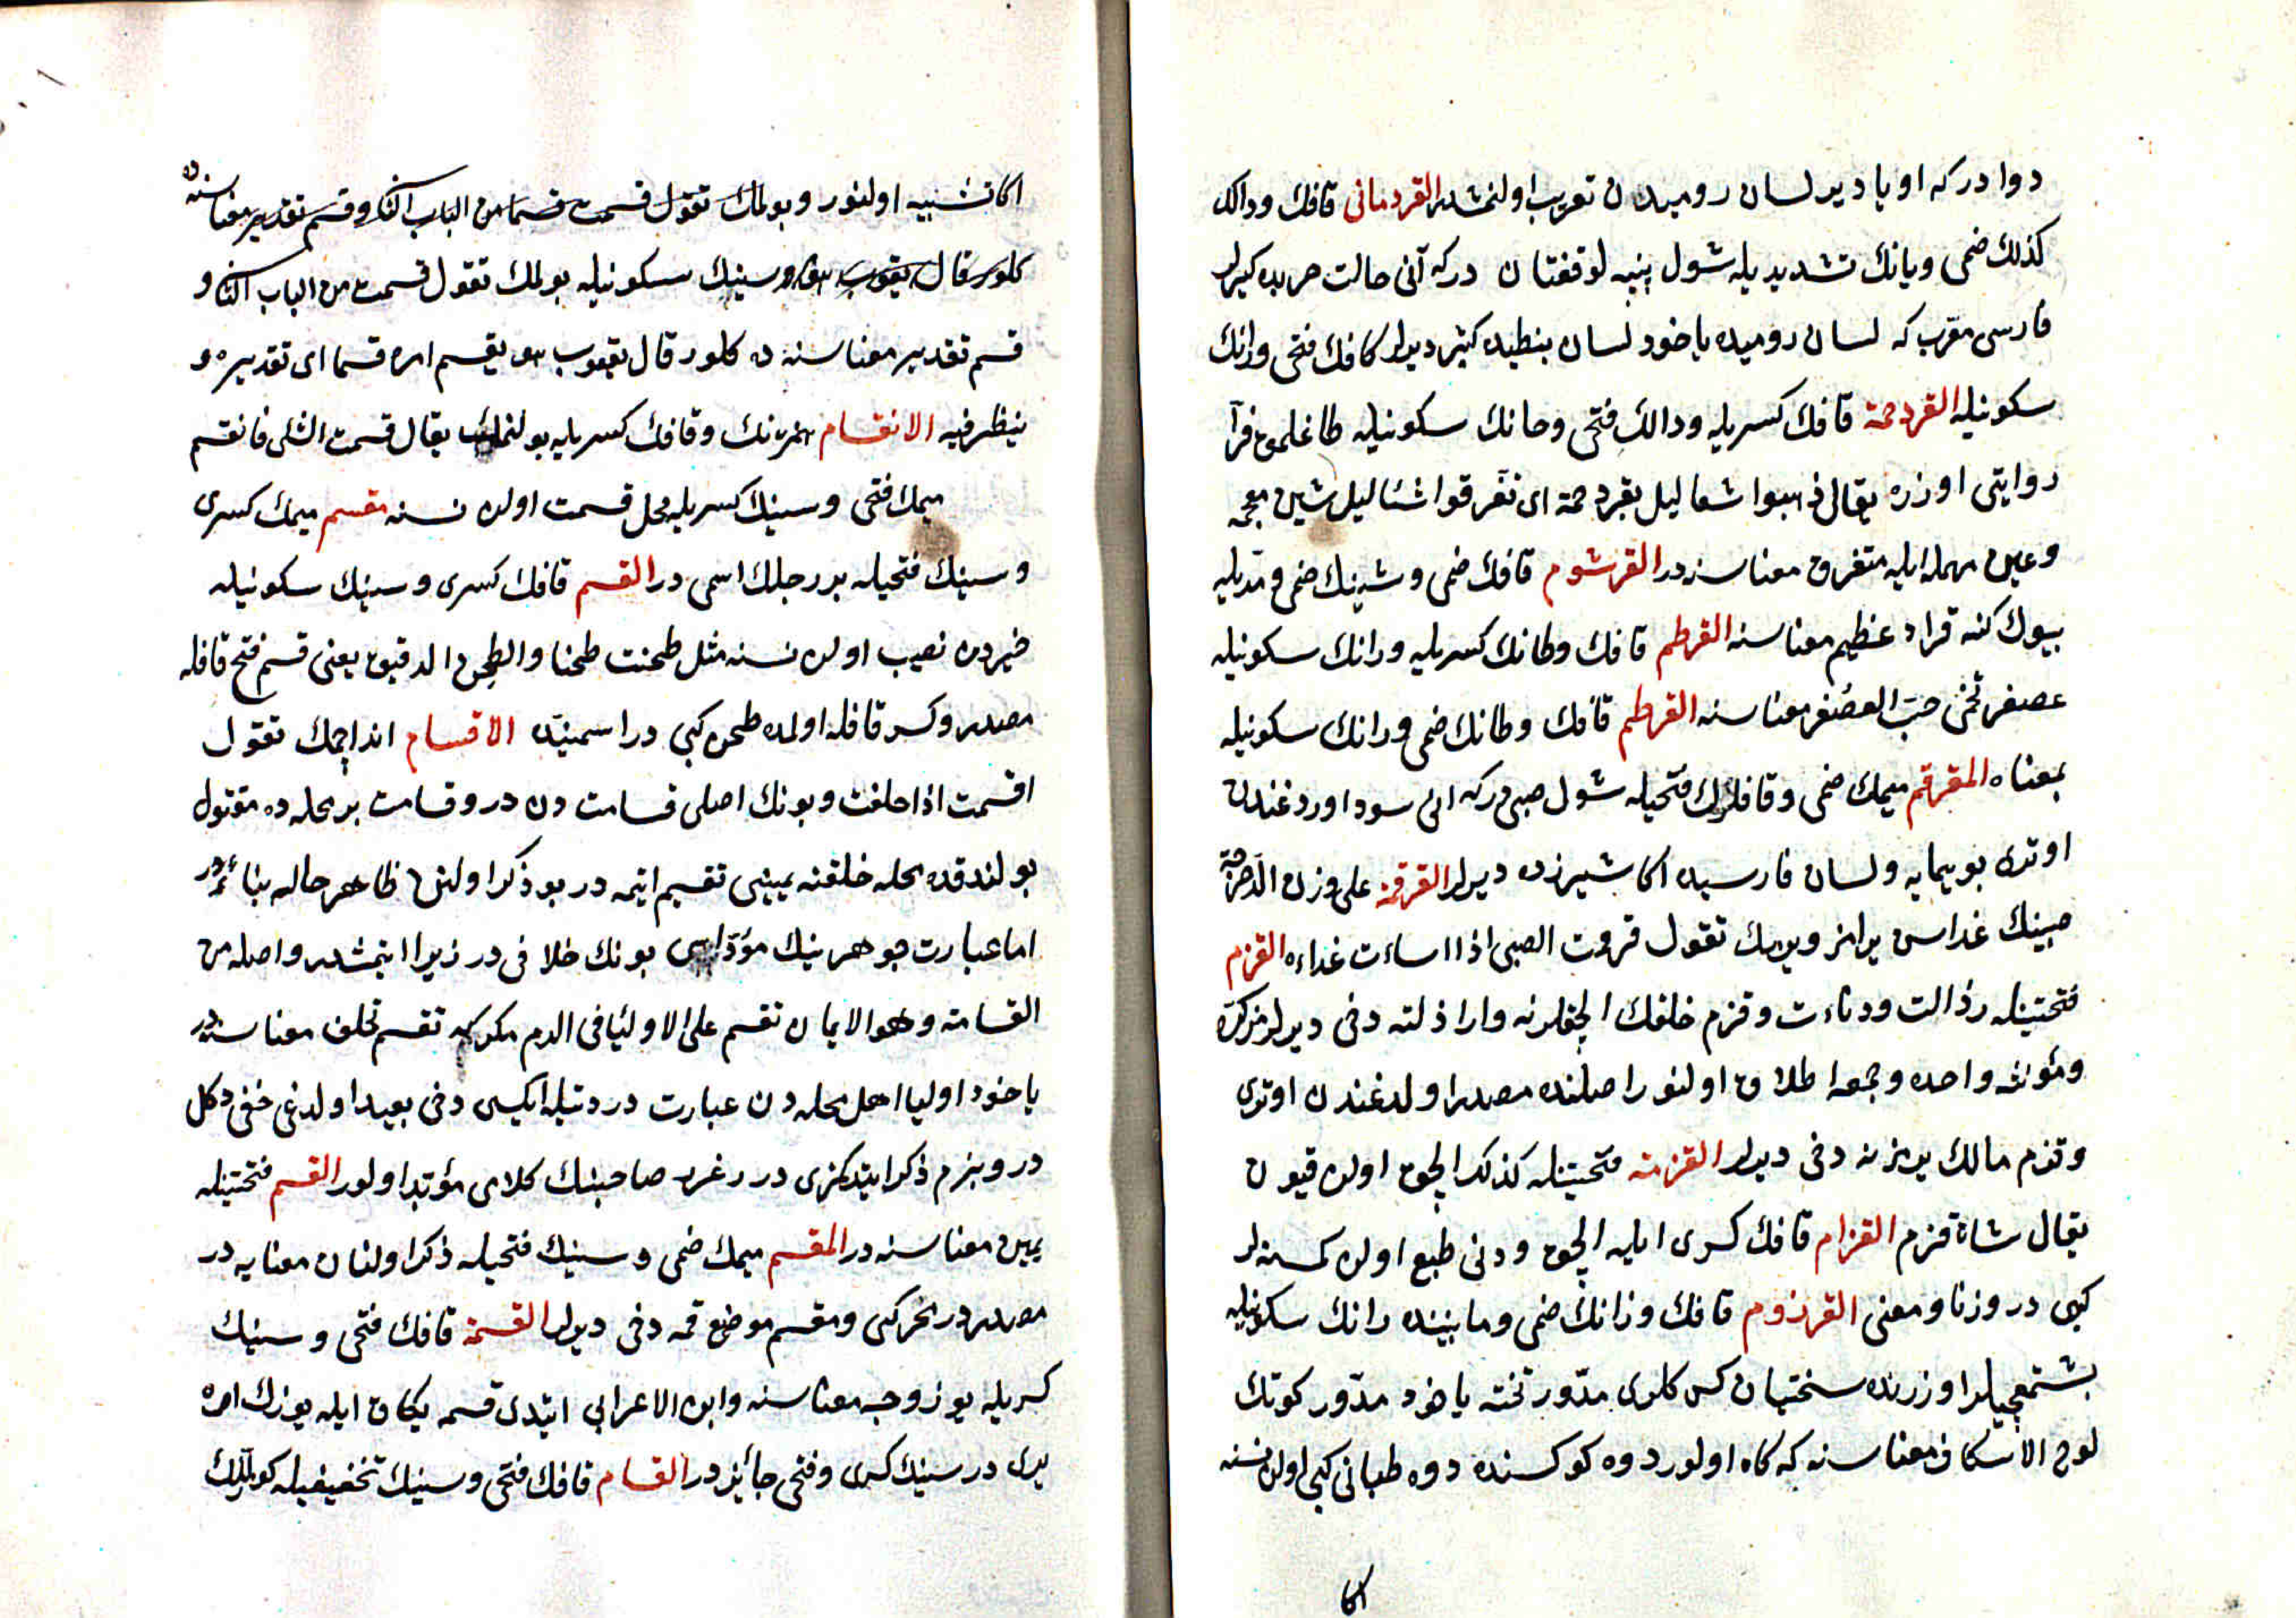 دوا در كه اويا دير لسان روميدن تعريب اولنمشدر القردمانى قافك ودالك
كذلك ضمى ويانك تشديديله شول پنبه لو قفتان در كه آنى حالت حربده كيرلر
فارسى معرب كه لسان روميده ياخود لسان بنطيده كبر ديرلر كافك فتحى ورانك
سكونيله القردحمة قافك كسريله ودالك فتحى وحانك سكونيله طاغلمق فرآ
روايتى اوزره يقال ذهبوا شعاليل بقردحمة اى تفرقوا شعاليل شين معجمه
وعين مهمله ايله متفرق معناسنه در القرشوم قافك ضمى وشينك ضمى ومديله
بيوك كنه قراد عظيم معناسنه القرطم قافك وطانك كسريله ورانك سكونيله
عصفر تخمى حب العصفر معناسنه القرطم قافك وطانك ضمى ورانك سكونيله
بمعناه المقرقم ميمك ضمى وقافلرك فتحيله شول صبى در كه انى سود اوردغندن
اوترى بوييمايه ولسان فارسيده اكا شيرزده ديرلر القرقمة على وزن الدحرجة
صبينك غداسى يرامز ويرمك تقول قرقمت الصبى اذا اساءت غداءه القزم
فتحتينله رذالت ودناءت وقزم خلقك الچقلرنه واراذلنه دخى ديرلر مذكره
ومؤنثه واحده وجمعه اطلاق اولنور اصلنده مصدر اولدغندن اوترى
وقزم مالك يرمزنه دخى ديرلر القزمة فتحتينله كذلك الچق اولان قيون
يقال شاة قزم القزام قافك كسرى ايله الچق ودنى طبع اولان كمسنه لر
كبى در وزنا ومعنى القرزوم قافك وزانك ضمى ومابينده رانك سكونيله
بشمقجيلر اوزرنده سختيان كسدكلرى مدور تخته ياخود مدور كوتك
لوح الاسكاف معناسنه كه كاه اولور دوه كوكسنده دوه طبانى كبى اولان نسنه
اكا
اكا تشبيه اولنور وبولمك تقول قسمت قسما من الباب الثانى وقسم تقدير معناسنه ده
كلور قال يعقوب هو وسينك سكونيله بولمك تقول قسمت من الباب الثانى و
قسم تقدير معناسنه ده كلور قال يعقوب هو يقسم امره قسما اى تقديره و
ينظر فيه الانقسام همزنك وقافك كسريله بولنمك يقال قسمت الشئ فانقسم
ميمك فتحى وسينك كسريله محل قسمت اولان نسنه مقسم ميمك كسرى
وسينك فتحيله بر رجلك اسمى در القسم قافك كسرى وسينك سكونيله
خيردن نصيب اولان نسنه مثل طحنت طحنا والطحن الدقيق يعنى قسم فتح قافله
مصدر وكسر قافله اولمده طحن كبى در اسميتده الاقسام اند ايچمك تقول
اقسمت اذا حلفت وبونك اصلى قسامت دن در وقسامت بر محله ده مقتول
بولندقده محله خلقنه يمينى تقسيم ايتمه در بو ذكر اولنن ظاهر حاله بناءً در
اما عبارت جوهرينك مؤداسى بونك خلافى در زيرا ايتمشدر واصله من
القسامة وهو الايمان تقسم على الاولياء فى الدم مكر كه تقسم تحلف معناسنه در
ياخود اوليا اهل محله دن عبارت در دنيله ايكيسى دخى بعيد اولدغى خفى دكل
در وبزم ذكر ايتدكمزى در رغرر صاحبنك كلامى مؤيد اولور القسم فتحتينله
يمين معناسنه در المقسم ميمك ضمى وسينك فتحيله ذكر اولنان معنايه در
مصدر در مخرج كبى ومقسم موضع قسمه دخى ديرلر القسمة قافك فتحى وسينك
كسريله يوز وجه معناسنه وابن الاعرابى ايتدى قسمه يكاق ايله بوزك اوره
يرى در سينك كسرى وفتحى جائز در القسام قافك فتحى وسينك تخفيفيله كوزللك